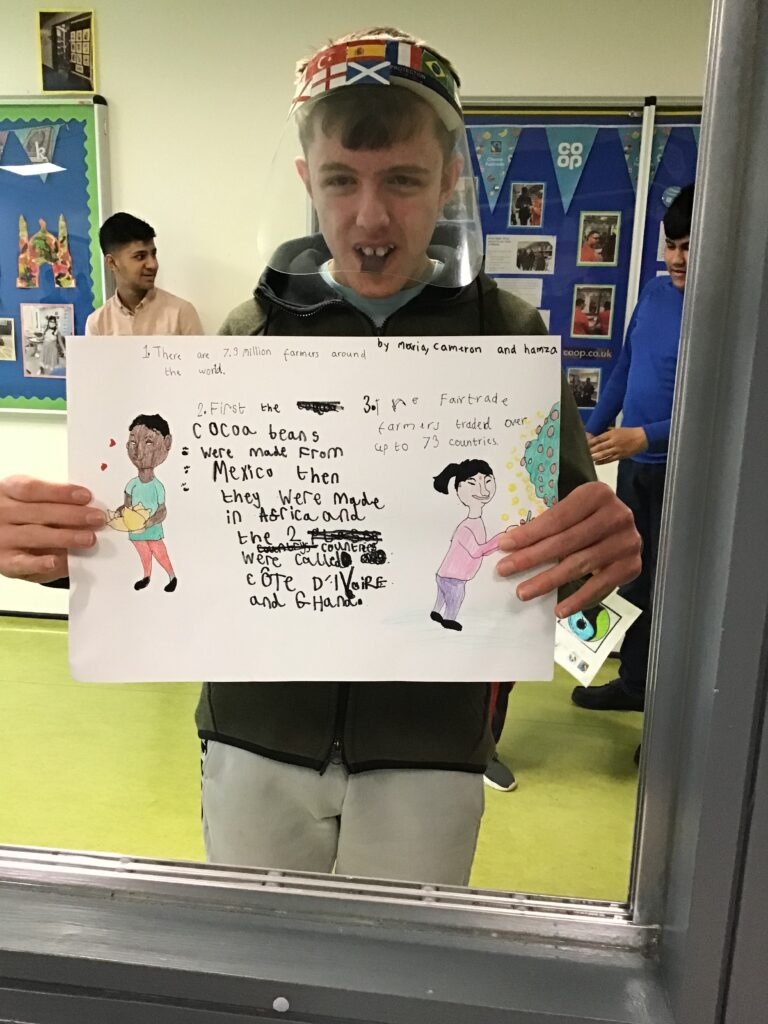 PROTECTION
CO
OP
coop.co.uk
by Maria, Cameron and hamza
1. There are 7.9 million farmers around
the world.
2. First the
cocoa beans
were made from
Mexico then
they were made
in Africa and
the 2
countries
were called
côte D'IVoire
and Ghana.
3. Fairtrade
farmers traded over
up to 73 countries.